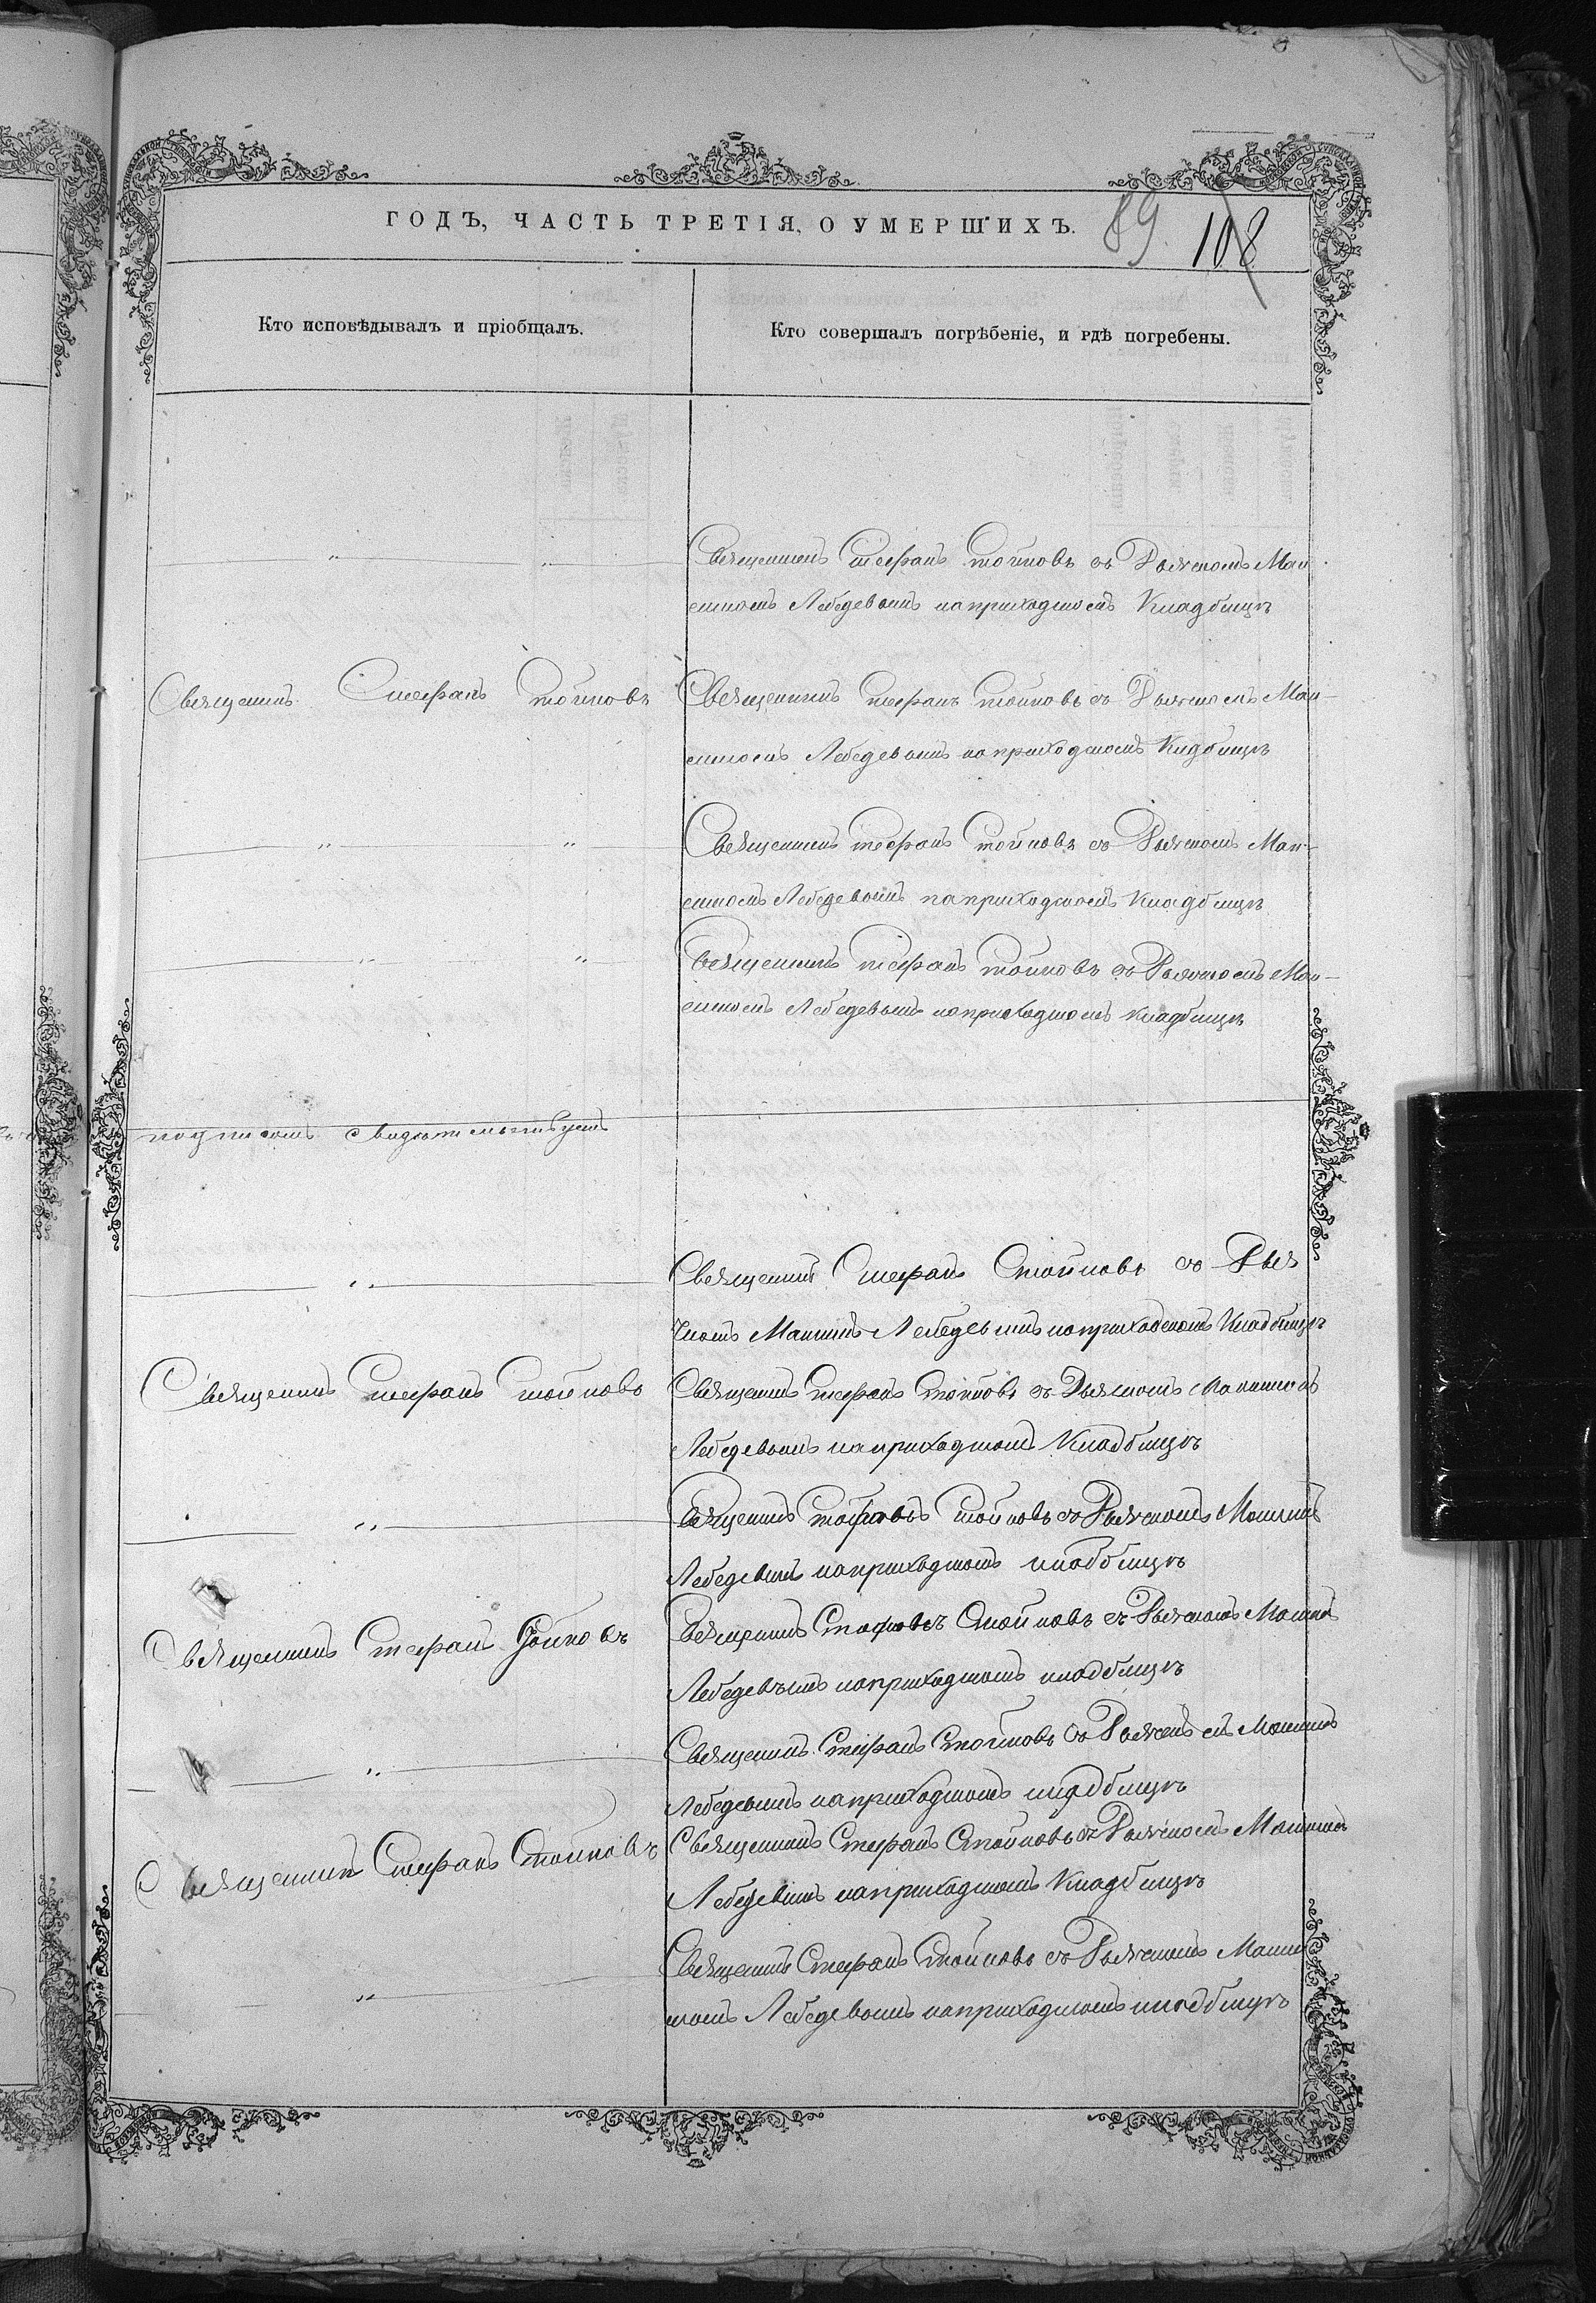 ГОДЪ, ЧАСТЬ ТРЕТІЯ, О УМЕРШИХЪ.
89. 108
Кто исповѣдывалъ и пріобщалъ.
Кто совершалъ погрѣбеніе, и гдѣ погребены.
Священникъ Стефанъ Стойковъ съ Дьячкомъ
Лебедевымъ на приходскомъ Кладбищѣ
Священникъ Стефанъ Стойковъ
Священникъ Стефанъ Стойковъ съ Дьячкомъ
Лебедевымъ на приходскомъ Кладбищѣ
Священникъ Стефанъ Стойковъ съ Дьячкомъ
Лебедевымъ на приходскомъ Кладбищѣ
Священникъ Стефанъ Стойковъ съ Дьячкомъ
Лебедевымъ на приходскомъ кладбищѣ
подписомъ свидѣтельствуетъ
Священникъ Стефанъ Стойковъ съ Дья
чкомъ Лебедевымъ на приходскомъ Кладбищѣ
Священникъ Стефанъ Стойковъ
Священникъ Стефанъ Стойковъ съ Дьячкомъ
Лебедевымъ на приходскомъ Кладбищѣ
Священникъ Стойковъ съ Дьячкомъ
Лебедевымъ на приходскомъ кладбищѣ
Священникъ Стефанъ Стойковъ
Священникъ Стойковъ съ Дьячкомъ
Лебедевымъ на приходскомъ кладбищѣ
Священникъ Стефанъ Стойковъ съ Дьячкомъ
Лебедевымъ на приходскомъ кладбищѣ
Священникъ Стефанъ Стойковъ
Священникъ Стефанъ Стойковъ съ Дьячкомъ
Лебедевымъ на приходскомъ Кладбищѣ
Священникъ Стефанъ Стойковъ съ Дьячкомъ
Лебедевымъ на приходскомъ кладбищѣ